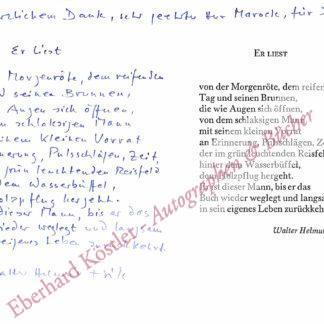 herzlichem Dank, sehr geehrter Herr Marock, für
Er liest
Morgenröte, dem reifenden
seinen Brunnen,
Augen sich öffnen,
schlaksigen Mann
seinem kleinen Vorrat
Erinnerung, Pulsschlägen, Zeit,
grün leuchtenden Reisfeld
dem Wasserbüffel,
Holzpflug hergeht.
dieser Mann, bis er das
wieder weglegt und langsam
eigenes Leben zurückkehrt.
Walter Helmut Fritz
ER LIEST
von der Morgenröte, dem reifen
Tag und seinen Brunnen,
die wie Augen sich öffnen,
von dem schlaksigen Mann
mit seinem kleinen Vorrat
an Erinnerung, Pulsschlägen, Ze
der im grün leuchtenden Reisfel
hinter dem Wasserbüffel,
dem Holzpflug hergeht.
Er liest dieser Mann, bis er das
Buch wieder weglegt und langsa
in sein eigenes Leben zurückkeh
Walter Helmu
Eberhard Köstler Autographen & Bücher